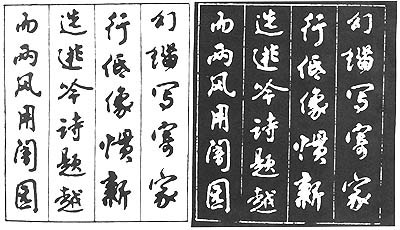 幻描写寄家
行低像惯新
选逃冷诗题越
而两风用
幻描写寄家
行低像惯新
选逃冷诗题越
而两风用